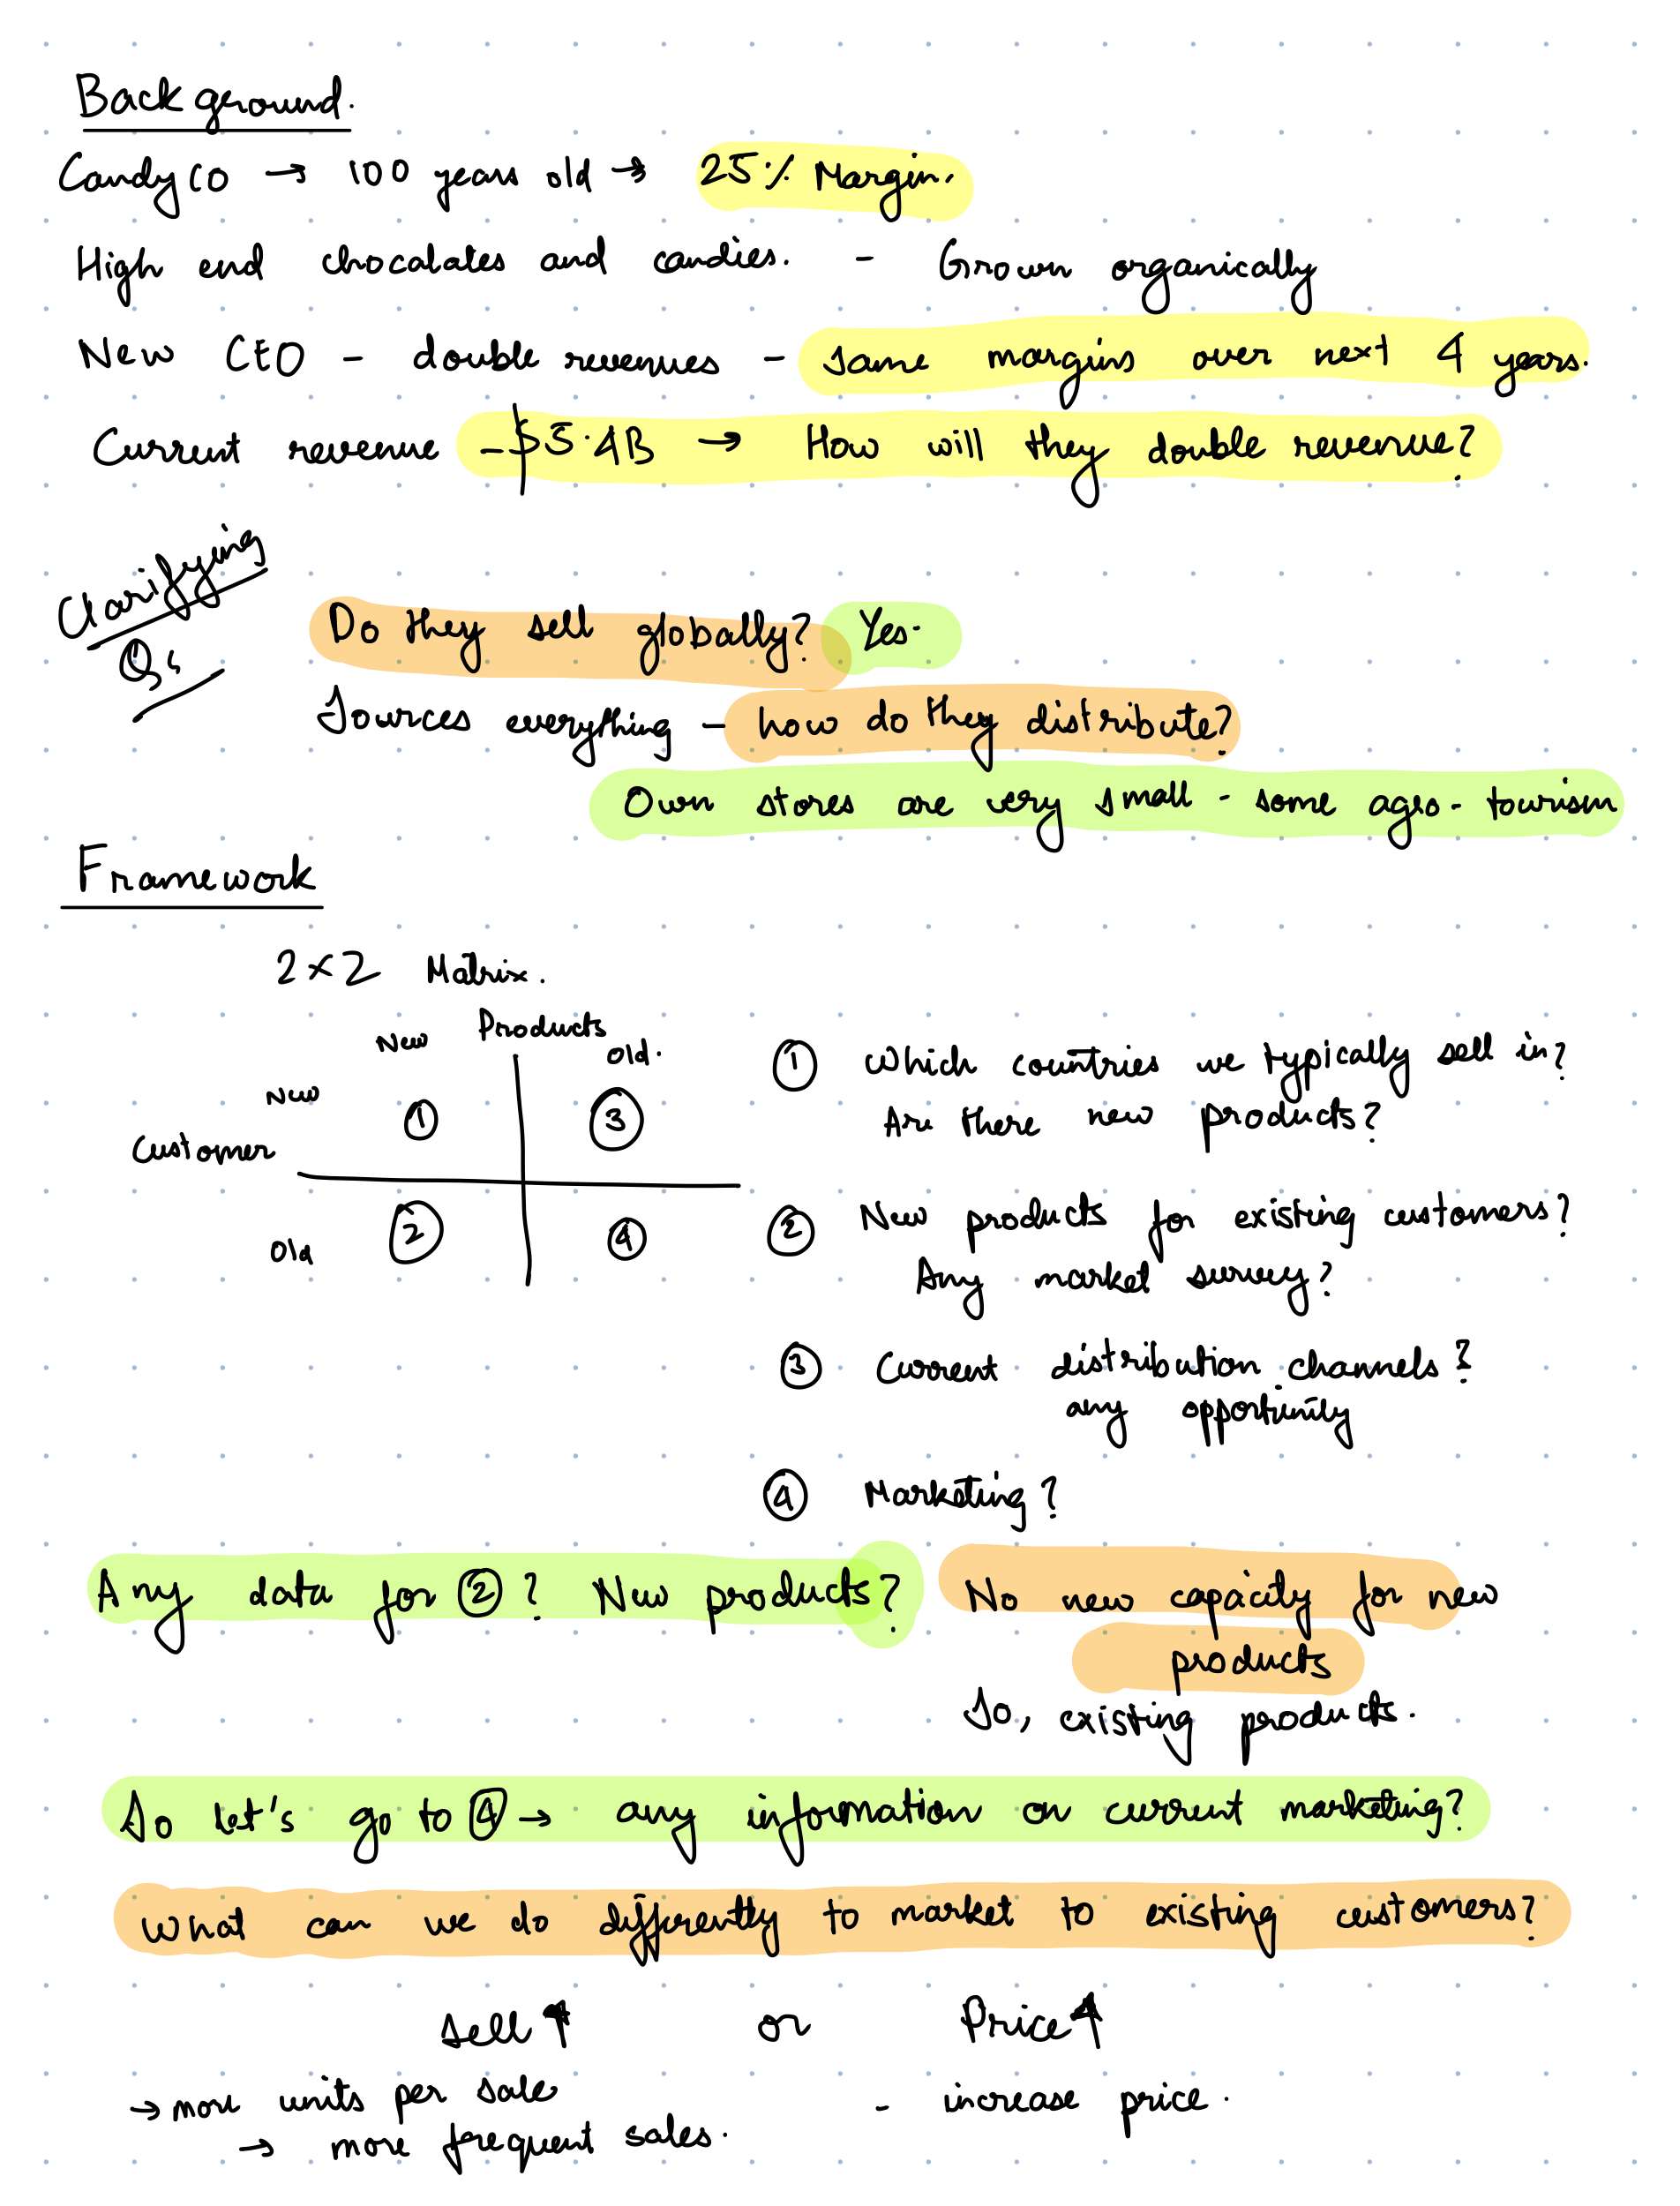 Background.
Candy CO → 100 years old → 25% Margin.
High end chocalates and candies. - Grown organically
New CEO - double revenues - same margins over next 4 years.
Current revenue - $5.4B → How will they double revenue?
Clarifying
Qs
Do they sell globally? Yes.
Sources everything - how do they distribute?
Own stores are very small - some agro-tourism
Framework
2×2 Matrix.
Products
New Old.
New ① ③
Customer
Old ② ④
① Which countries we typically sell in?
Are there new products?
② New products for existing customers?
Any market survey?
③ Current distribution channels?
any opportunity
④ Marketing?
Any data for ②? New products? No new capacity for new
products
So, existing products.
So let's go to ④ → any information on current marketing?
What can we do differently to market to existing customers?
Sell ↑ or Price ↑
→ more units per sale - increase price.
→ more frequent sales.